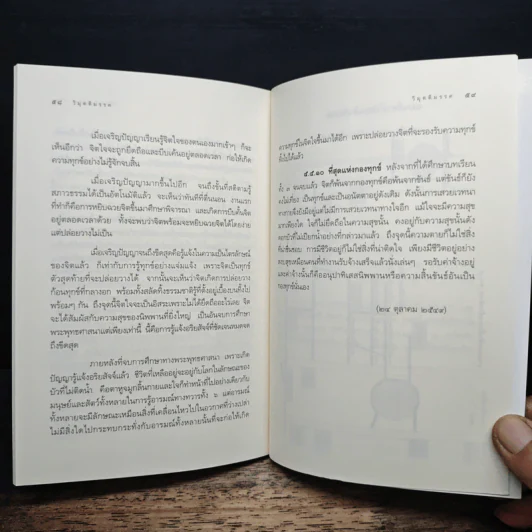 ๕๘ วิมุตติมรรค
เมื่อเจริญปัญญาเรียนรู้จิตใจของตนเองมากเข้าๆ ก็จะ
เห็นอีกว่า จิตใจจะถูกยึดถือและบีบคั้นอยู่ตลอดเวลา ก่อให้เกิด
ความทุกข์อย่างไม่รู้จักจบสิ้น
เมื่อเจริญปัญญามากขึ้นไปอีก จนถึงขั้นที่สติตามรู้
สภาวธรรมได้เป็นอัตโนมัติแล้ว จะเห็นว่าทันทีที่ตื่นนอน งานแรก
ที่ทำก็คือการหยิบฉวยจิตขึ้นมาศึกษาพิจารณา และเกิดการบีบคั้นจิต
อยู่ตลอดวันด้วย ทั้งจะพบว่าจิตพร้อมจะหยิบฉวยจิตได้โดยง่าย
แต่ปล่อยวางไม่เป็น
เมื่อเจริญปัญญาจนถึงขีดสุดคือรู้แจ้งในความเป็นไตรลักษณ์
ของจิตแล้ว ก็เท่ากับการรู้ทุกข์อย่างแจ่มแจ้ง เพราะจิตเป็นทุกข์
ตัวสุดท้ายที่จะปล่อยวางได้ จากนั้นจะเห็นว่าจิตเกิดการปล่อยวาง
ก้อนทุกข์ที่กลางอก พร้อมทั้งสลัดทิ้งธรรมชาติรู้ที่ตั้งอยู่เบื้องบนทิ้งไป
พร้อมๆ กัน ถึงจุดนี้จิตใจจะเป็นอิสระเพราะไม่ได้ยึดถืออะไรเลย จิต
จะได้สัมผัสกับความสุขของนิพพานที่ยิ่งใหญ่ เป็นอันจบการศึกษา
พระพุทธศาสนาแต่เพียงเท่านี้ นี้คือการรู้แจ้งอริยสัจจ์ที่ชัดเจนหมดจด
ถึงขีดสุด
ภายหลังที่จบการศึกษาทางพระพุทธศาสนา เพราะเกิด
ปัญญารู้แจ้งอริยสัจจ์แล้ว ชีวิตที่เหลืออยู่จะอยู่กับโลกในลักษณะของ
บัวที่ไม่ติดน้ำ คือตาหูจมูกลิ้นกายและใจก็ทำหน้าที่ไปอย่างเดียวกับ
มนุษย์และสัตว์ทั้งหลายในการรู้อารมณ์ทางทวารทั้ง ๖ แต่อารมณ์
ทั้งหลายจะมีลักษณะเหมือนสิ่งที่เคลื่อนไหวไปในอวกาศที่ว่างเปล่า
ไม่มีสิ่งใดไปกระทบกระทั่งกับอารมณ์ทั้งหลายนั้นที่จะก่อให้เกิด
วิมุตติมรรค ๕๙
ความทุกข์ในจิตใจขึ้นมาได้อีก เพราะปล่อยวางจิตที่จะรองรับความทุกข์
ทิ้งไปได้แล้ว
๔.๕.๑๐ ที่สุดแห่งกองทุกข์ หลังจากที่ได้ศึกษาบทเรียน
ทั้ง ๓ จนจบแล้ว จิตก็พ้นจากกองทุกข์คือพ้นจากขันธ์ แต่ขันธ์ก็ยัง
คงไม่เที่ยง เป็นทุกข์และเป็นอนัตตาอยู่ดังเดิม ดังนั้นการเสวยเวทนา
ทางกายจึงยังมีอยู่แต่ไม่มีการเสวยเวทนาทางใจอีก แม้ใจจะมีความสุข
สักเพียงใด ใจก็ไม่ยึดถือในความสุขนั้น คงอยู่กับความสุขนั้นดัง
ดอกบัวที่ไม่เปียกน้ำอย่างที่กล่าวมาแล้ว ถึงจุดนี้ความตายก็ไม่ใช่สิ่ง
ที่น่าชื่นชอบ การมีชีวิตอยู่ก็ไม่ใช่สิ่งที่น่าติดใจ เพียงมีชีวิตอยู่อย่าง
สงบสุขเหมือนคนที่ทำงานรับจ้างเสร็จแล้วนั่งเล่นๆ รอรับค่าจ้างอยู่
และค่าจ้างนั้นก็คืออนุปาทิเสสนิพพานหรือความสิ้นขันธ์อันเป็น
กองทุกข์นั่นเอง
(๒๔ ตุลาคม ๒๕๔๙)